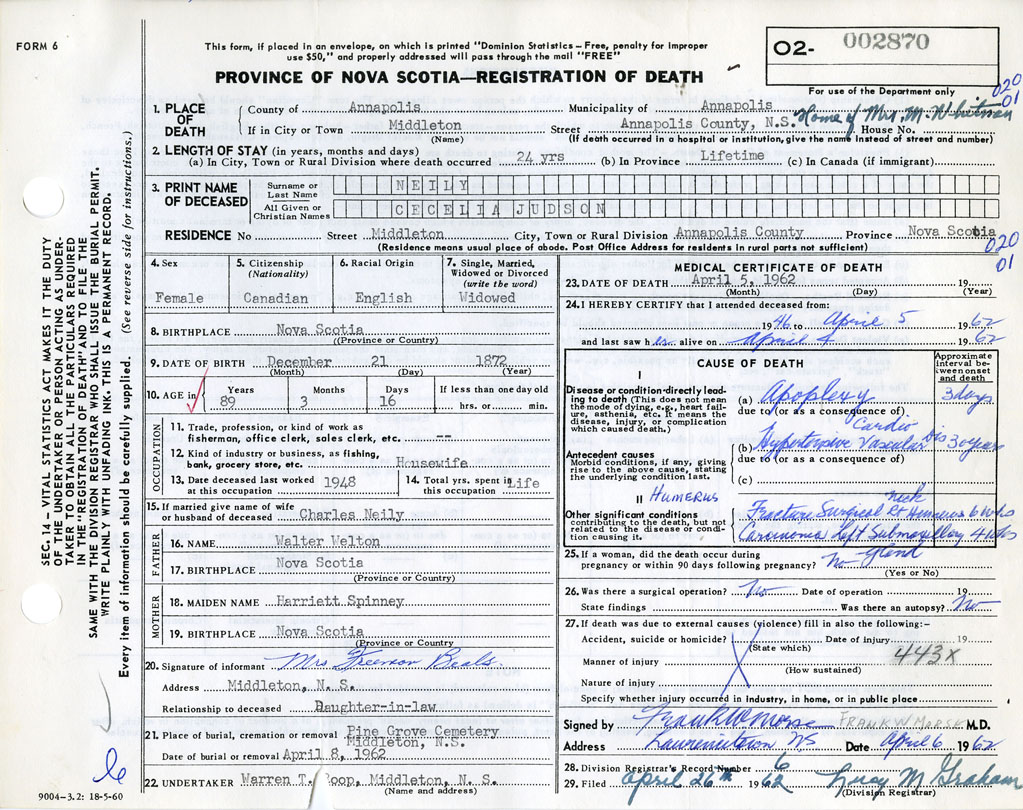 FORM 6
This form, if placed in an envelope, on which is printed "Dominion Statistics – Free, penalty for improper
use $50," and properly addressed will pass through the mail "FREE"
PROVINCE OF NOVA SCOTIA—REGISTRATION OF DEATH
O2- 002870
For use of the Department only
020
01
1. PLACE OF DEATH
County of Annapolis Municipality of Annapolis
Home of Mrs. M. Whitman
If in City or Town Middleton Street Annapolis County, N.S. House No.
(Name) (If death occurred in a hospital or institution, give the name instead of street and number)
2. LENGTH OF STAY (in years, months and days)
(a) In City, Town or Rural Division where death occurred 24 yrs (b) In Province Lifetime (c) In Canada (if immigrant)
3. PRINT NAME OF DECEASED
Surname or Last Name NEILY
All Given or Christian Names CECELIA JUDSON
RESIDENCE No Street Middleton City, Town or Rural Division Annapolis County Province Nova Scotia
(Residence means usual place of abode. Post Office Address for residents in rural parts not sufficient)
020
01
4. Sex
Female
5. Citizenship
(Nationality)
Canadian
6. Racial Origin
English
7. Single, Married,
Widowed or Divorced
(write the word)
Widowed
8. BIRTHPLACE Nova Scotia
(Province or Country)
9. DATE OF BIRTH December 21 1872
(Month) (Day) (Year)
10. AGE in
Years Months Days If less than one day old
89 3 16 hrs. or min.
OCCUPATION
11. Trade, profession, or kind of work as
fisherman, office clerk, sales clerk, etc. --
12. Kind of industry or business, as fishing,
bank, grocery store, etc. Housewife
13. Date deceased last worked
at this occupation 1948
14. Total yrs. spent in
this occupation Life
15. If married give name of wife
or husband of deceased Charles Neily
FATHER
16. NAME Walter Welton
17. BIRTHPLACE Nova Scotia
(Province or Country)
MOTHER
18. MAIDEN NAME Harriett Spinney
19. BIRTHPLACE Nova Scotia
(Province or Country
20. Signature of informant Mrs Freeman Beals
Address Middleton, N. S.
Relationship to deceased Daughter-in-law
21. Place of burial, cremation or removal Pine Grove Cemetery
Middleton, N.S.
Date of burial or removal April 8, 1962
22. UNDERTAKER Warren T. Roop, Middleton, N. S.
(Name and address)
MEDICAL CERTIFICATE OF DEATH
23. DATE OF DEATH April 5, 1962 19
(Month) (Day) (Year)
24. I HEREBY CERTIFY that I attended deceased from:
1946 to April 5 1962
and last saw her alive on April 4 1962
CAUSE OF DEATH
Approximate
interval be-
tween onset
and death
I
Disease or condition directly lead-
ing to death (This does not mean
the mode of dying, e.g., heart fail-
ure, asthenia, etc. It means the
disease, injury, or complication
which caused death.)
(a) Apoplexy 3 days
due to (or as a consequence of)
Cardio
(b) Hypertensive Vascular Dis 30 years
due to (or as a consequence of)
(c)
Antecedent causes
Morbid conditions, if any, giving
rise to the above cause, stating
the underlying condition last.
II HUMERUS
Other significant conditions
contributing to the death, but not
related to the disease or condi-
tion causing it.
neck
Fracture Surgical Rt Humerus 6 wks
Carcinoma Left Submaxillary
Gland
25. If a woman, did the death occur during
pregnancy or within 90 days following pregnancy? No
(Yes or No)
26. Was there a surgical operation? No Date of operation 19
State findings Was there an autopsy? No
27. If death was due to external causes (violence) fill in also the following:–
Accident, suicide or homicide? Date of injury 19
(State which)
443X
Manner of injury
(How sustained)
Nature of injury
Specify whether injury occurred in Industry, in home, or in public place
Signed by Frank W Morse FRANK W MORSE M.D.
Address Lawrencetown NS Date April 6 1962
28. Division Registrar's Record Number 6
29. Filed April 26th 1962 Lucy M Graham
(Division Registrar)
SEC. 14 – VITAL STATISTICS ACT MAKES IT THE DUTY
OF THE UNDERTAKER OR PERSON ACTING AS UNDER-
TAKER TO OBTAIN ALL THE PARTICULARS REQUIRED
IN THE "REGISTRATION OF DEATH" AND TO FILE THE
SAME WITH THE DIVISION REGISTRAR WHO SHALL ISSUE THE BURIAL PERMIT.
WRITE PLAINLY WITH UNFADING INK. THIS IS A PERMANENT RECORD.
Every item of information should be carefully supplied. (See reverse side for instructions.)
9004-3.2: 18-5-60